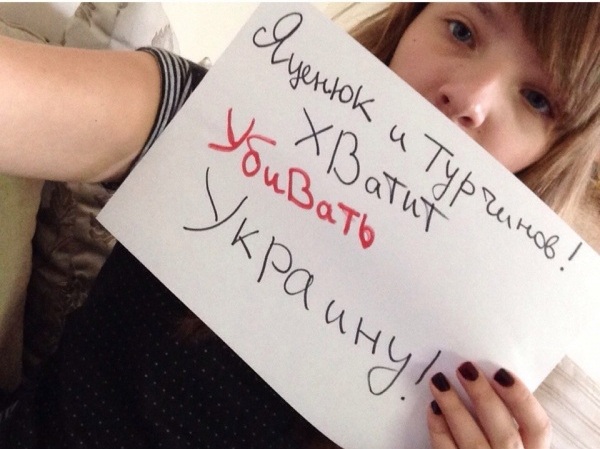 Яценюк и Турчинов!
ХВатит
УбиВать
Украину!